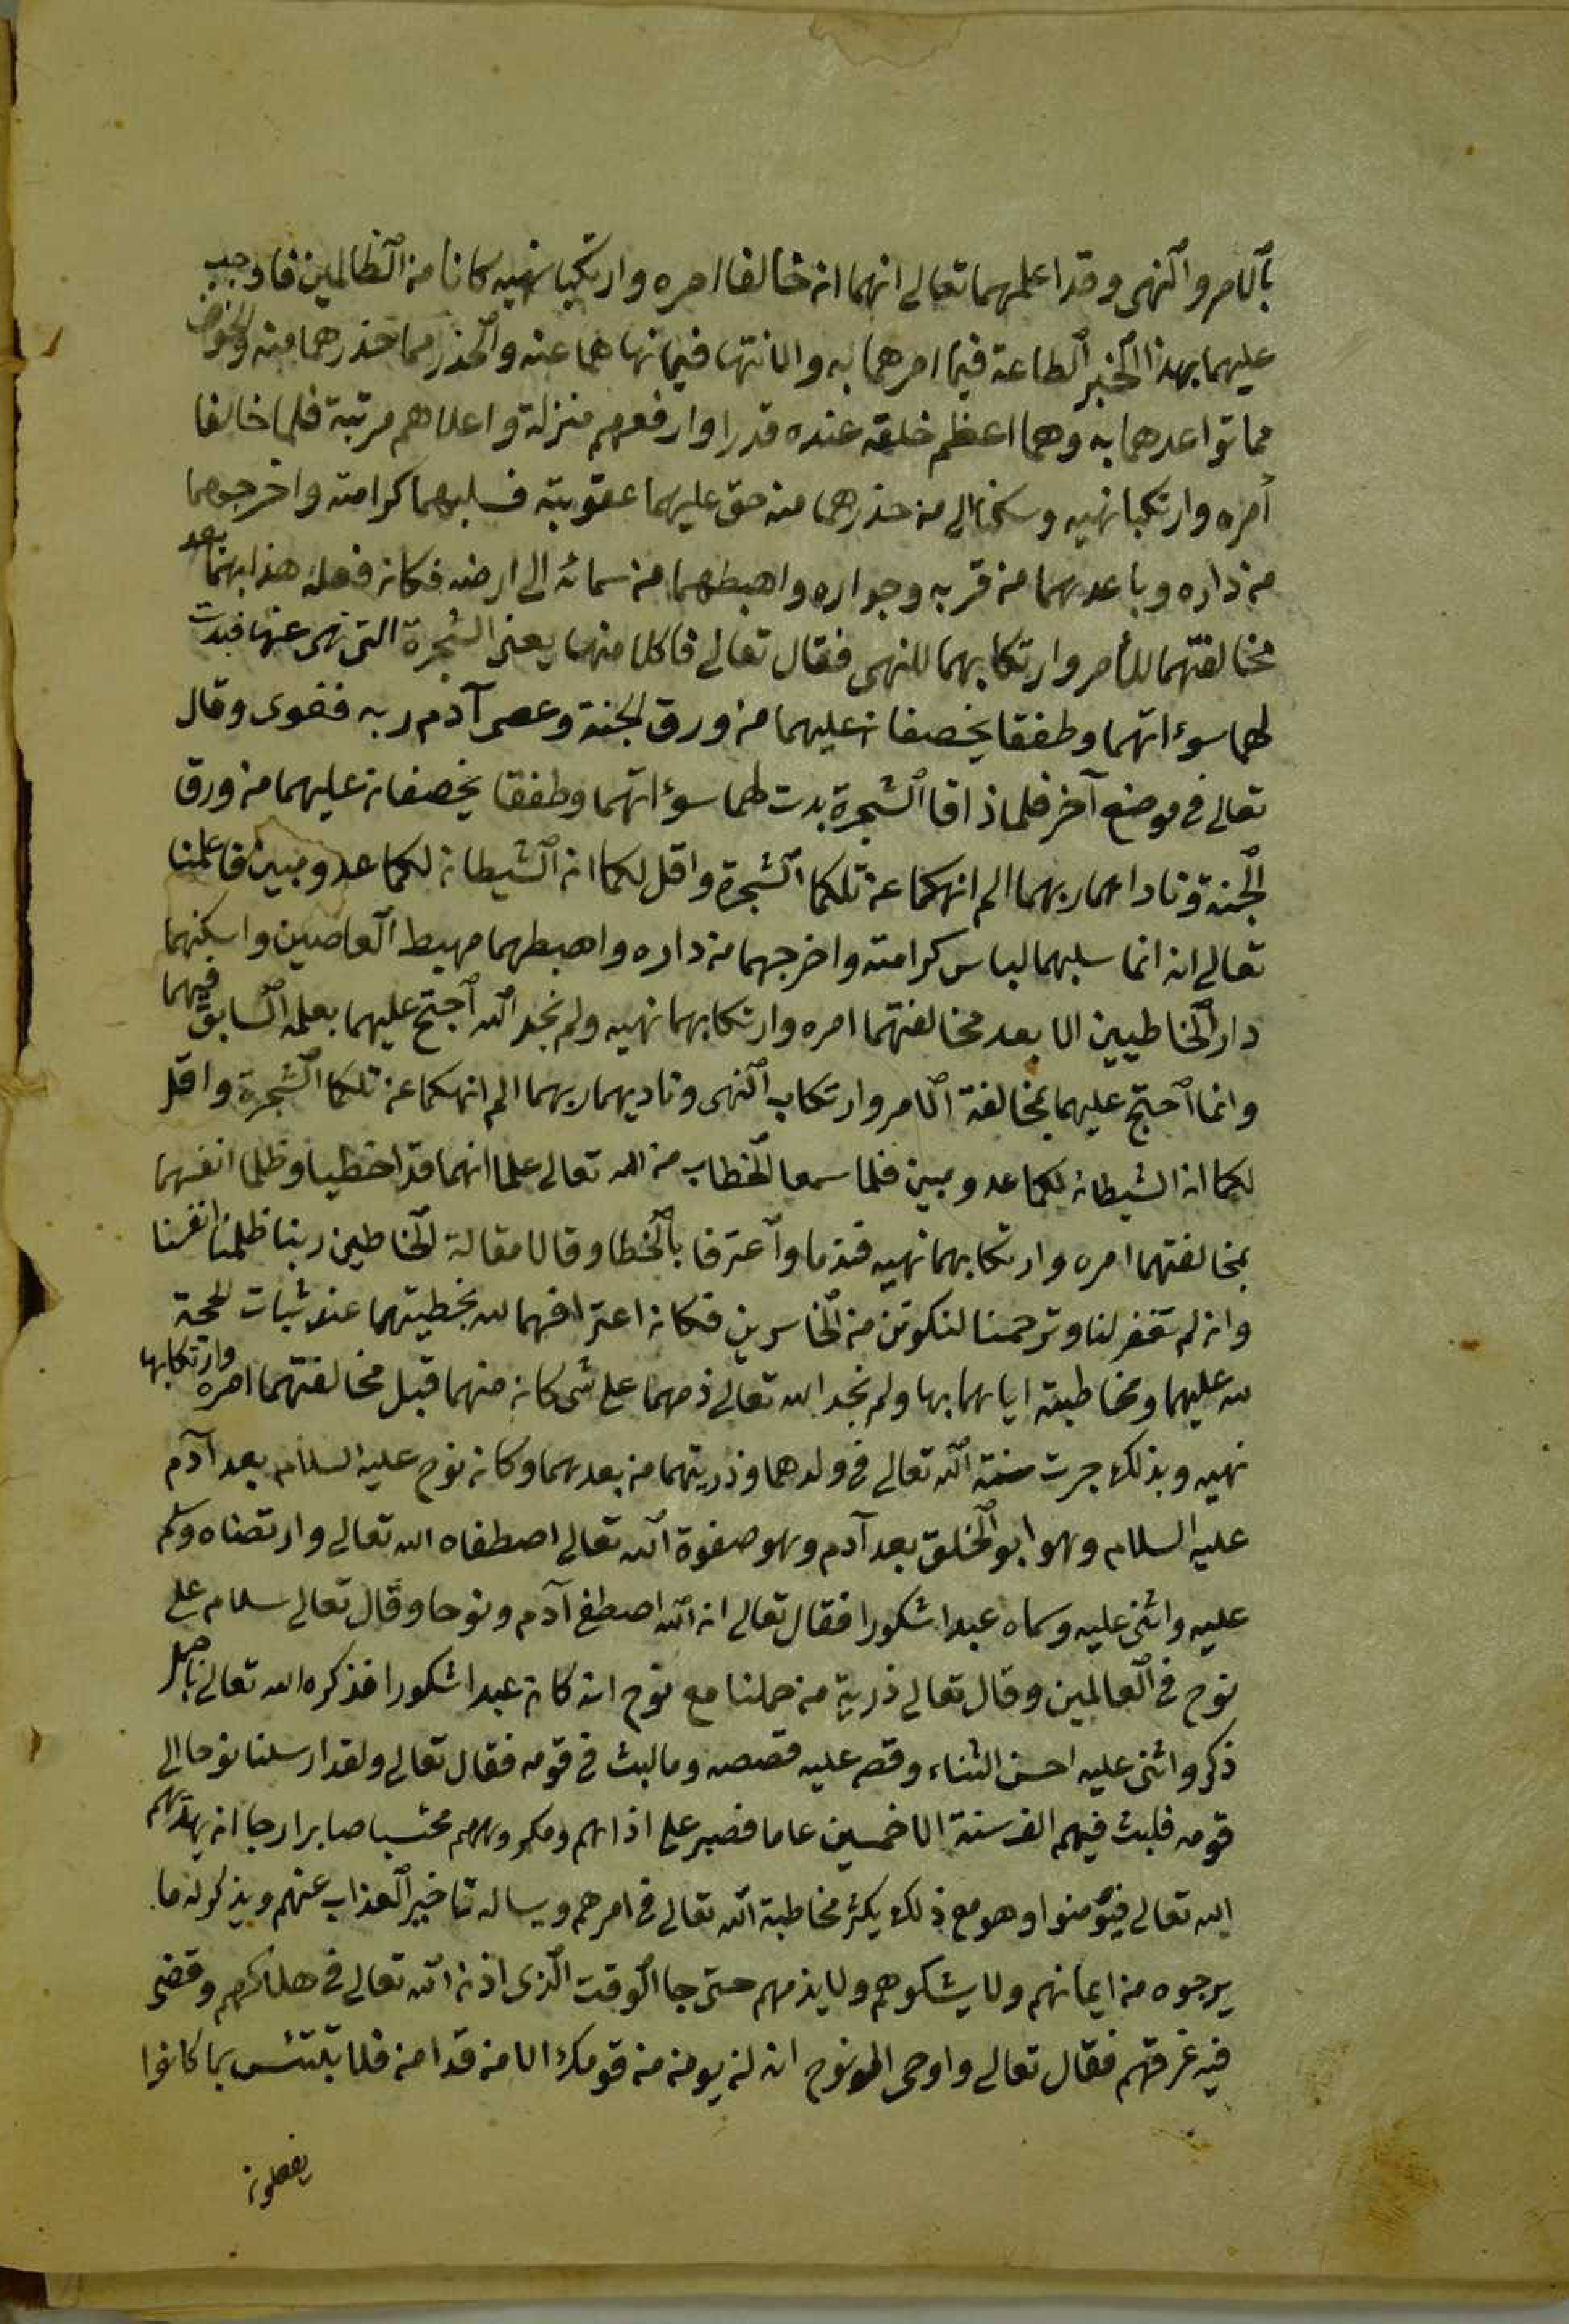 بالامر والنهى وقد اعلمهما تعالى انهما ان خالفا امره وارتكبا نهيه كانا من الظالمين فاوجب
عليهما بهذا الخبر الطاعة فيما امرهما به والانتها فيما نهاهما عنه والحذر مما حذرهما منه والخوف
مما تواعدهما به وهما اعظم خلقه عنده قدرا وارفعهم منزلة واعلاهم مرتبة فلما خالفا
أمره وارتكبا نهيه وسكنا الى من حذرهما منه حق عليهما عقوبته فسلبهما كرامته واخرجهما
من داره وباعدهما من قربه وجواره واهبطهما من سمائه الى ارضه فكان فعله هذا بهما بعد
مخالفتهما للأمر وارتكابهما للنهى فقال تعالى فاكلا منها يعنى الشجرة التى نهى عنها فبدت
لهما سوءاتهما وطفقا يخصفان عليهما من ورق الجنة وعصى آدم ربه فغوى وقال
تعالى فى موضع آخر فلما ذاقا الشجرة بدت لهما سوءاتهما وطفقا يخصفان عليهما من ورق
الجنة وناداهما ربهما الم انهكما عن تلكما الشجرة واقل لكما ان الشيطان لكما عدو مبين فاعلمنا
تعالى انه انما سلبهما لباس كرامته واخرجهما من داره واهبطهما مهبط العاصين واسكنهما
دار الخاطيين الا بعد مخالفتهما امره وارتكابهما نهيه ولم نجد الله احتج عليهما بعلمه السابق فيهما
وانما احتج عليهما بمخالفة الامر وارتكاب النهى وناديهما ربهما الم انهكما عن تلكما الشجرة واقل
لكما ان الشيطان لكما عدو مبين فلما سمعا الخطاب من الله تعالى علما انهما قد اخطيا وظلما انفسهما
بمخالفتهما امره وارتكابهما نهيه فندما واعترفا بالخطا وقالا مقالة الخاطين ربنا ظلمنا انفسنا
وان لم تغفر لنا وترحمنا لنكونن من الخاسرين فكان اعترافهما لله بخطيتهما عند ثبات الحجة
لله عليهما ومخاطبته اياهما بها ولم نجد الله تعالى ذمهما على شى كان منهما قبل مخالفتهما امره وارتكابهما
نهيه وبذلك جرت سنة الله تعالى فى ولدهما وذريتهما من بعدهما وكان نوح عليه السلام بعد آدم
عليه السلام وهو ابو الخلق بعد آدم وهو صفوة الله تعالى اصطفاه الله تعالى وارتضاه وسلم
عليه واثنى عليه وسماه عبدا شكورا فقال تعالى ان الله اصطفى آدم ونوحا وقال تعالى سلام على
نوح فى العالمين وقال تعالى ذرية من حملنا مع نوح انه كان عبدا شكورا فذكره الله تعالى باجمل
ذكر واثنى عليه احسن الثناء وقص عليه قصصه وما لبث فى قومه فقال تعالى ولقد ارسلنا نوحا الى
قومه فلبث فيهم الف سنة الا خمسين عاما فصبر على اذاهم ومكروههم محتسبا صابرا رجا ان يهديهم
الله تعالى فيؤمنوا وهو مع ذلك يكثر مخاطبة الله تعالى فى امرهم ويساله تاخير العذاب عنهم ويذكر له ما
يرجوه من ايمانهم ولا يشكوهم ولا يذمهم حتى جا الوقت الذى اذن الله تعالى فى هلاكهم وقضى
فيه غرقهم فقال تعالى واوحى الى نوح انه لن يومن من قومك الا من قد امن فلا تبتئس بما كانوا
يفعلون